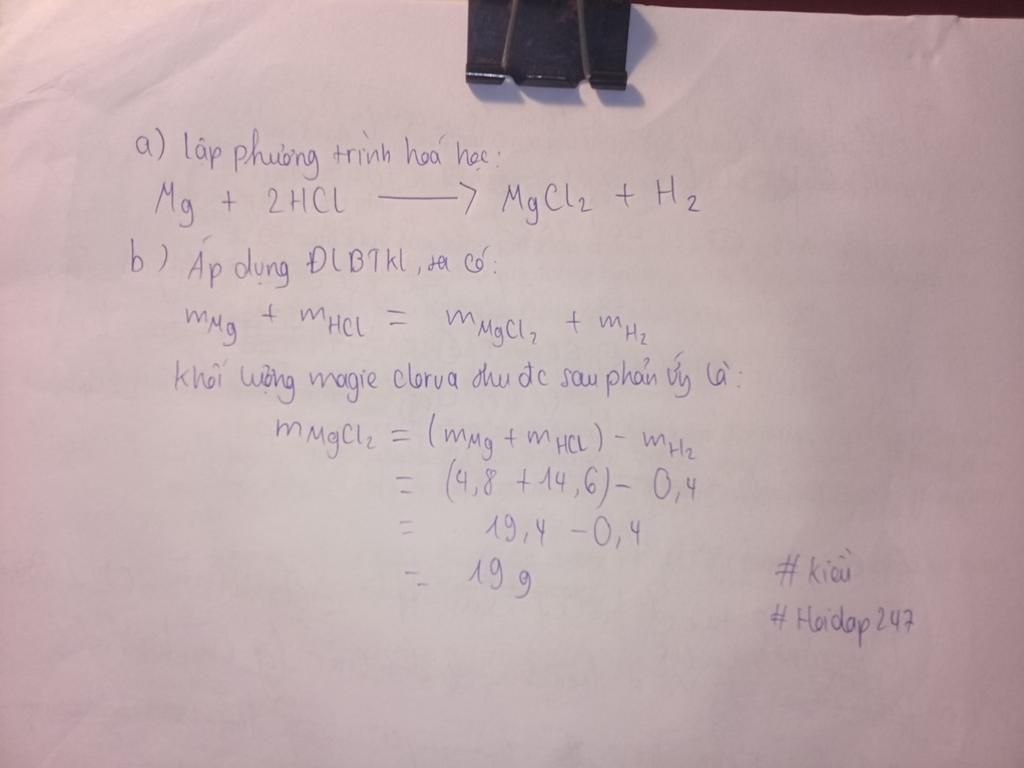 a) lập phương trình hoá học:
Mg + 2HCl ⟶ MgCl₂ + H₂
b) Áp dụng ĐLBTKL, ta có:
m_Mg + m_HCl = m_MgCl₂ + m_H₂
khối lượng magie clorua thu đc sau phản ứng là:
m_MgCl₂ = (m_Mg + m_HCl) - m_H₂
= (4,8 + 14,6) - 0,4
= 19,4 - 0,4
= 19 g
# kiều
# Hoidap247